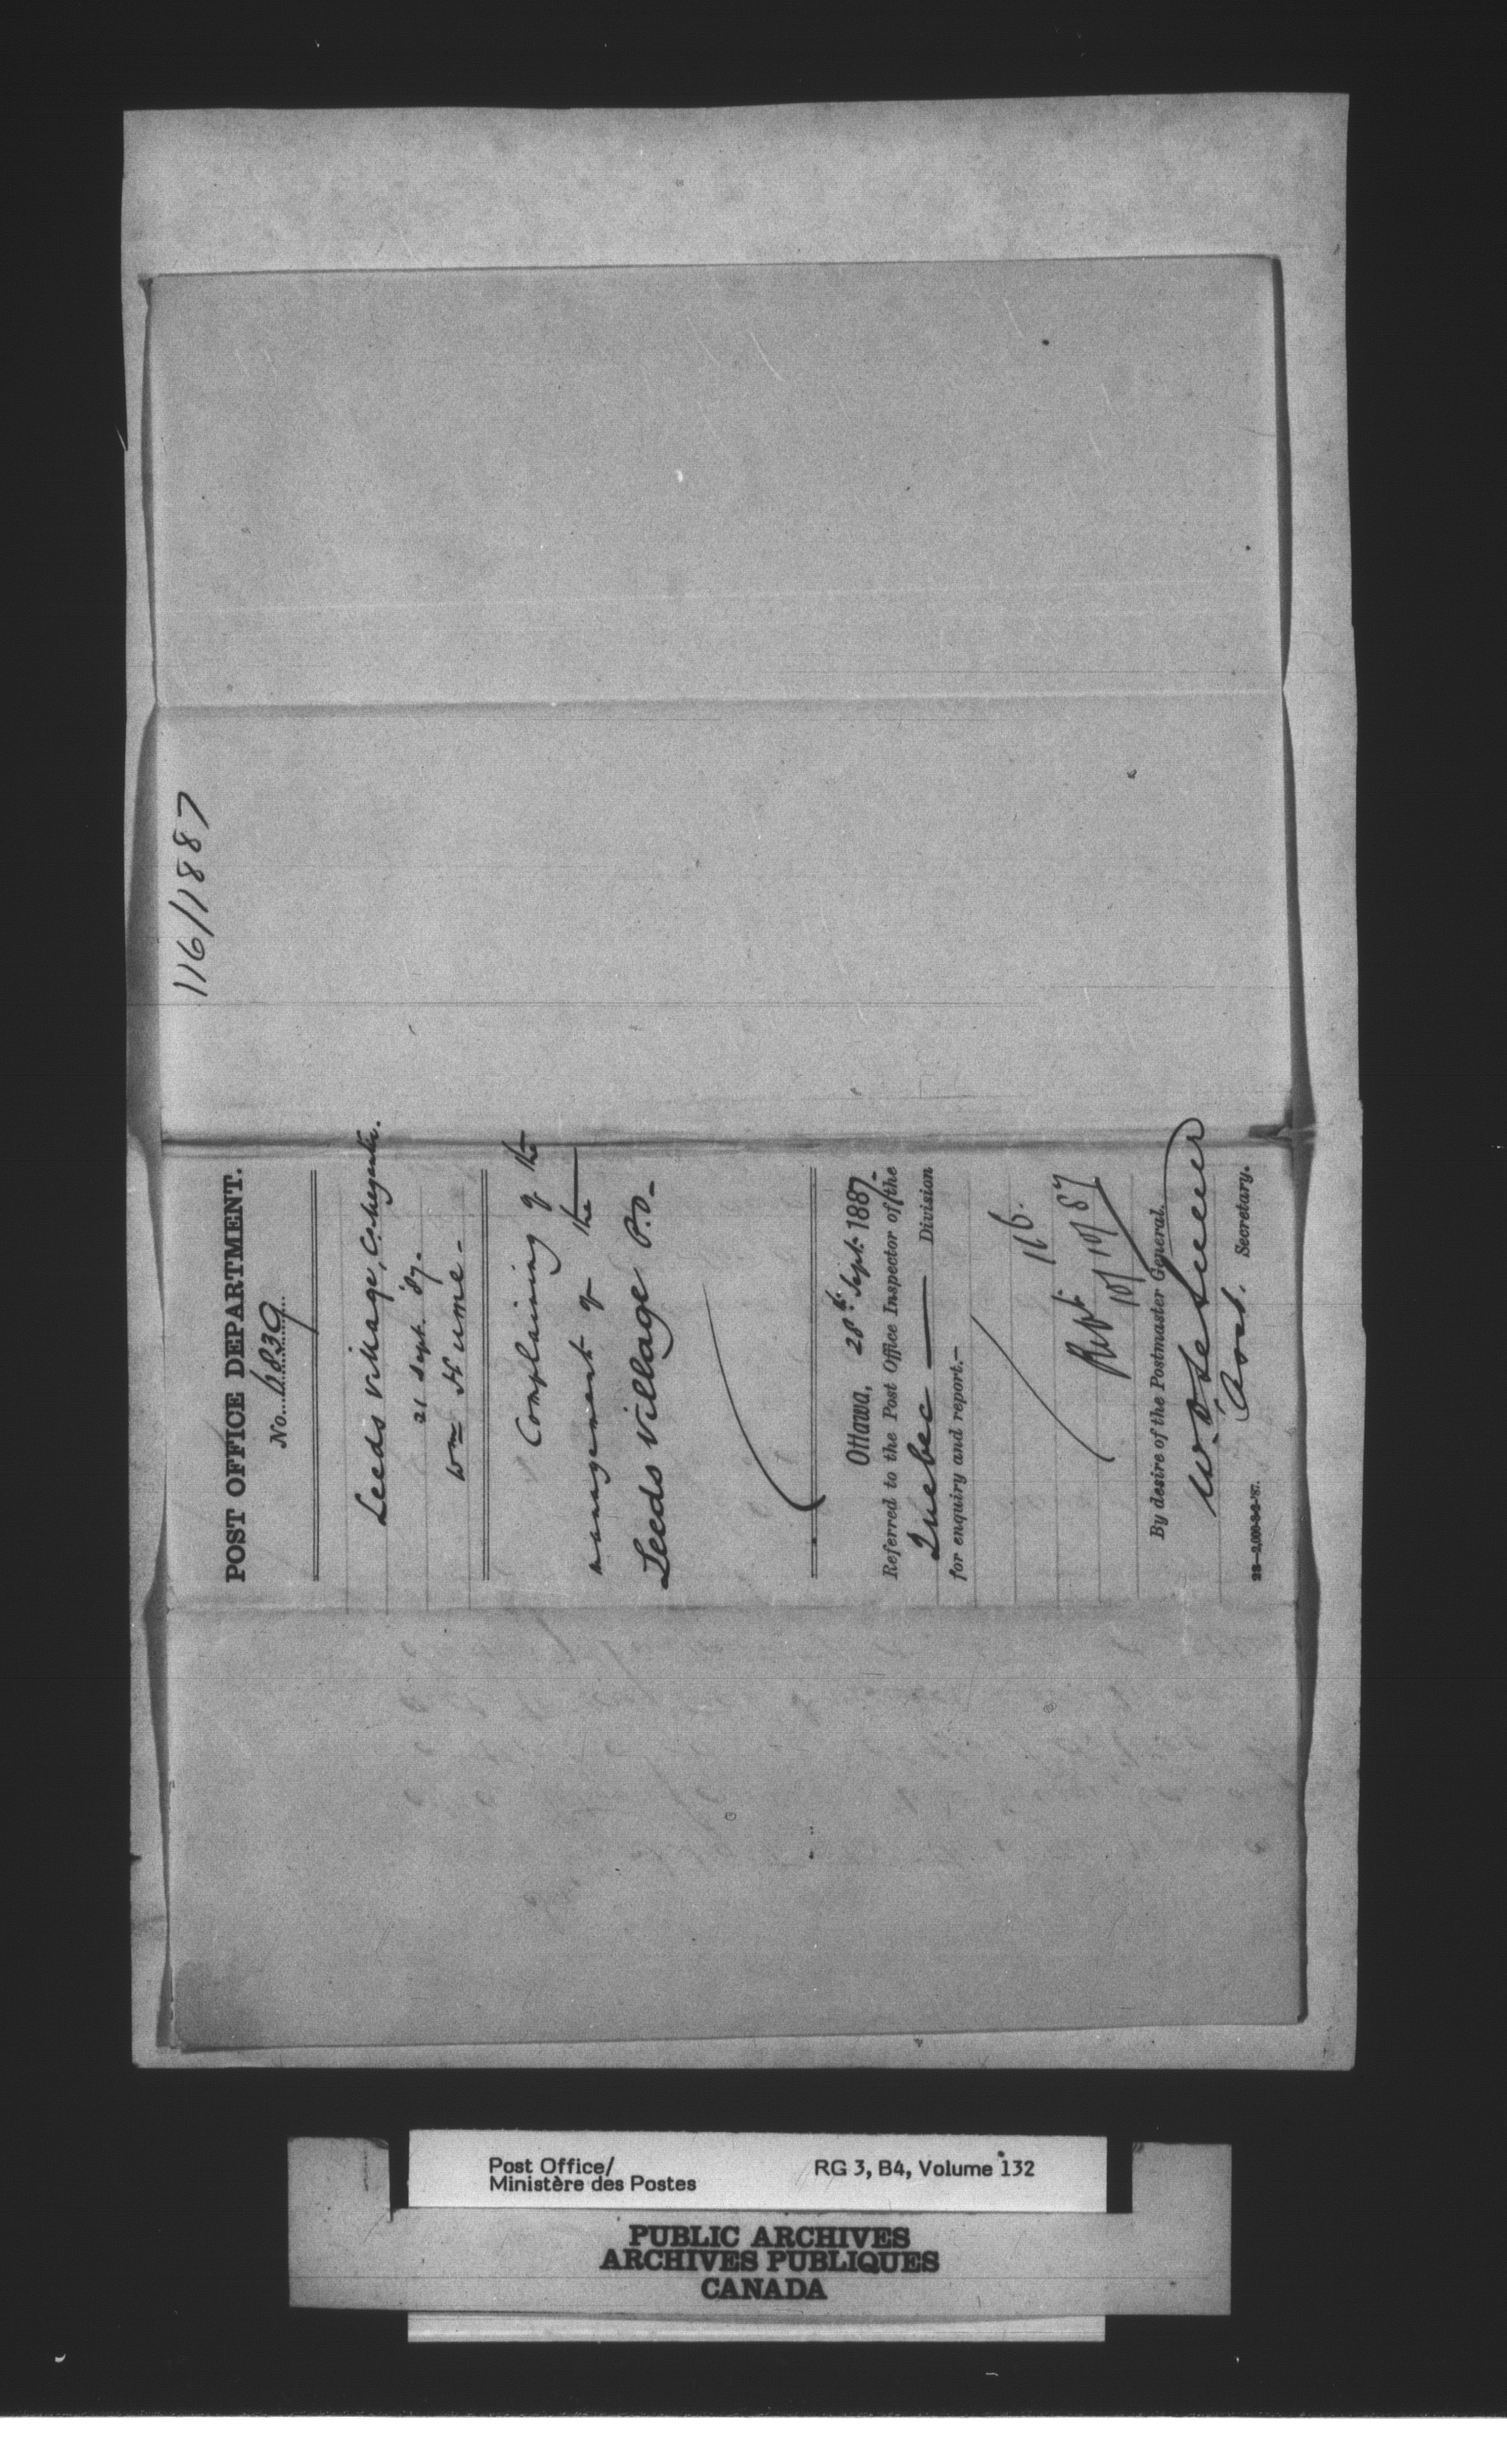 116/1887
POST OFFICE DEPARTMENT.
No. 6839
Leeds Village, Co. Megantic.
21 Sept. '87.
Wm Hume -
Complaining of the
management of the
Leeds Village P.O. -
Ottawa, 28th Sept. 1887.
Referred to the Post Office Inspector of the
Quebec Division
for enquiry and report.-
116.
Rept.
10/10/87
By desire of the Postmaster General.
W. D. LeSueur
Secretary.
23-2,000-3-2-'87.
Post Office/
Ministère des Postes
RG 3, B4, Volume 132
PUBLIC ARCHIVES
ARCHIVES PUBLIQUES
CANADA